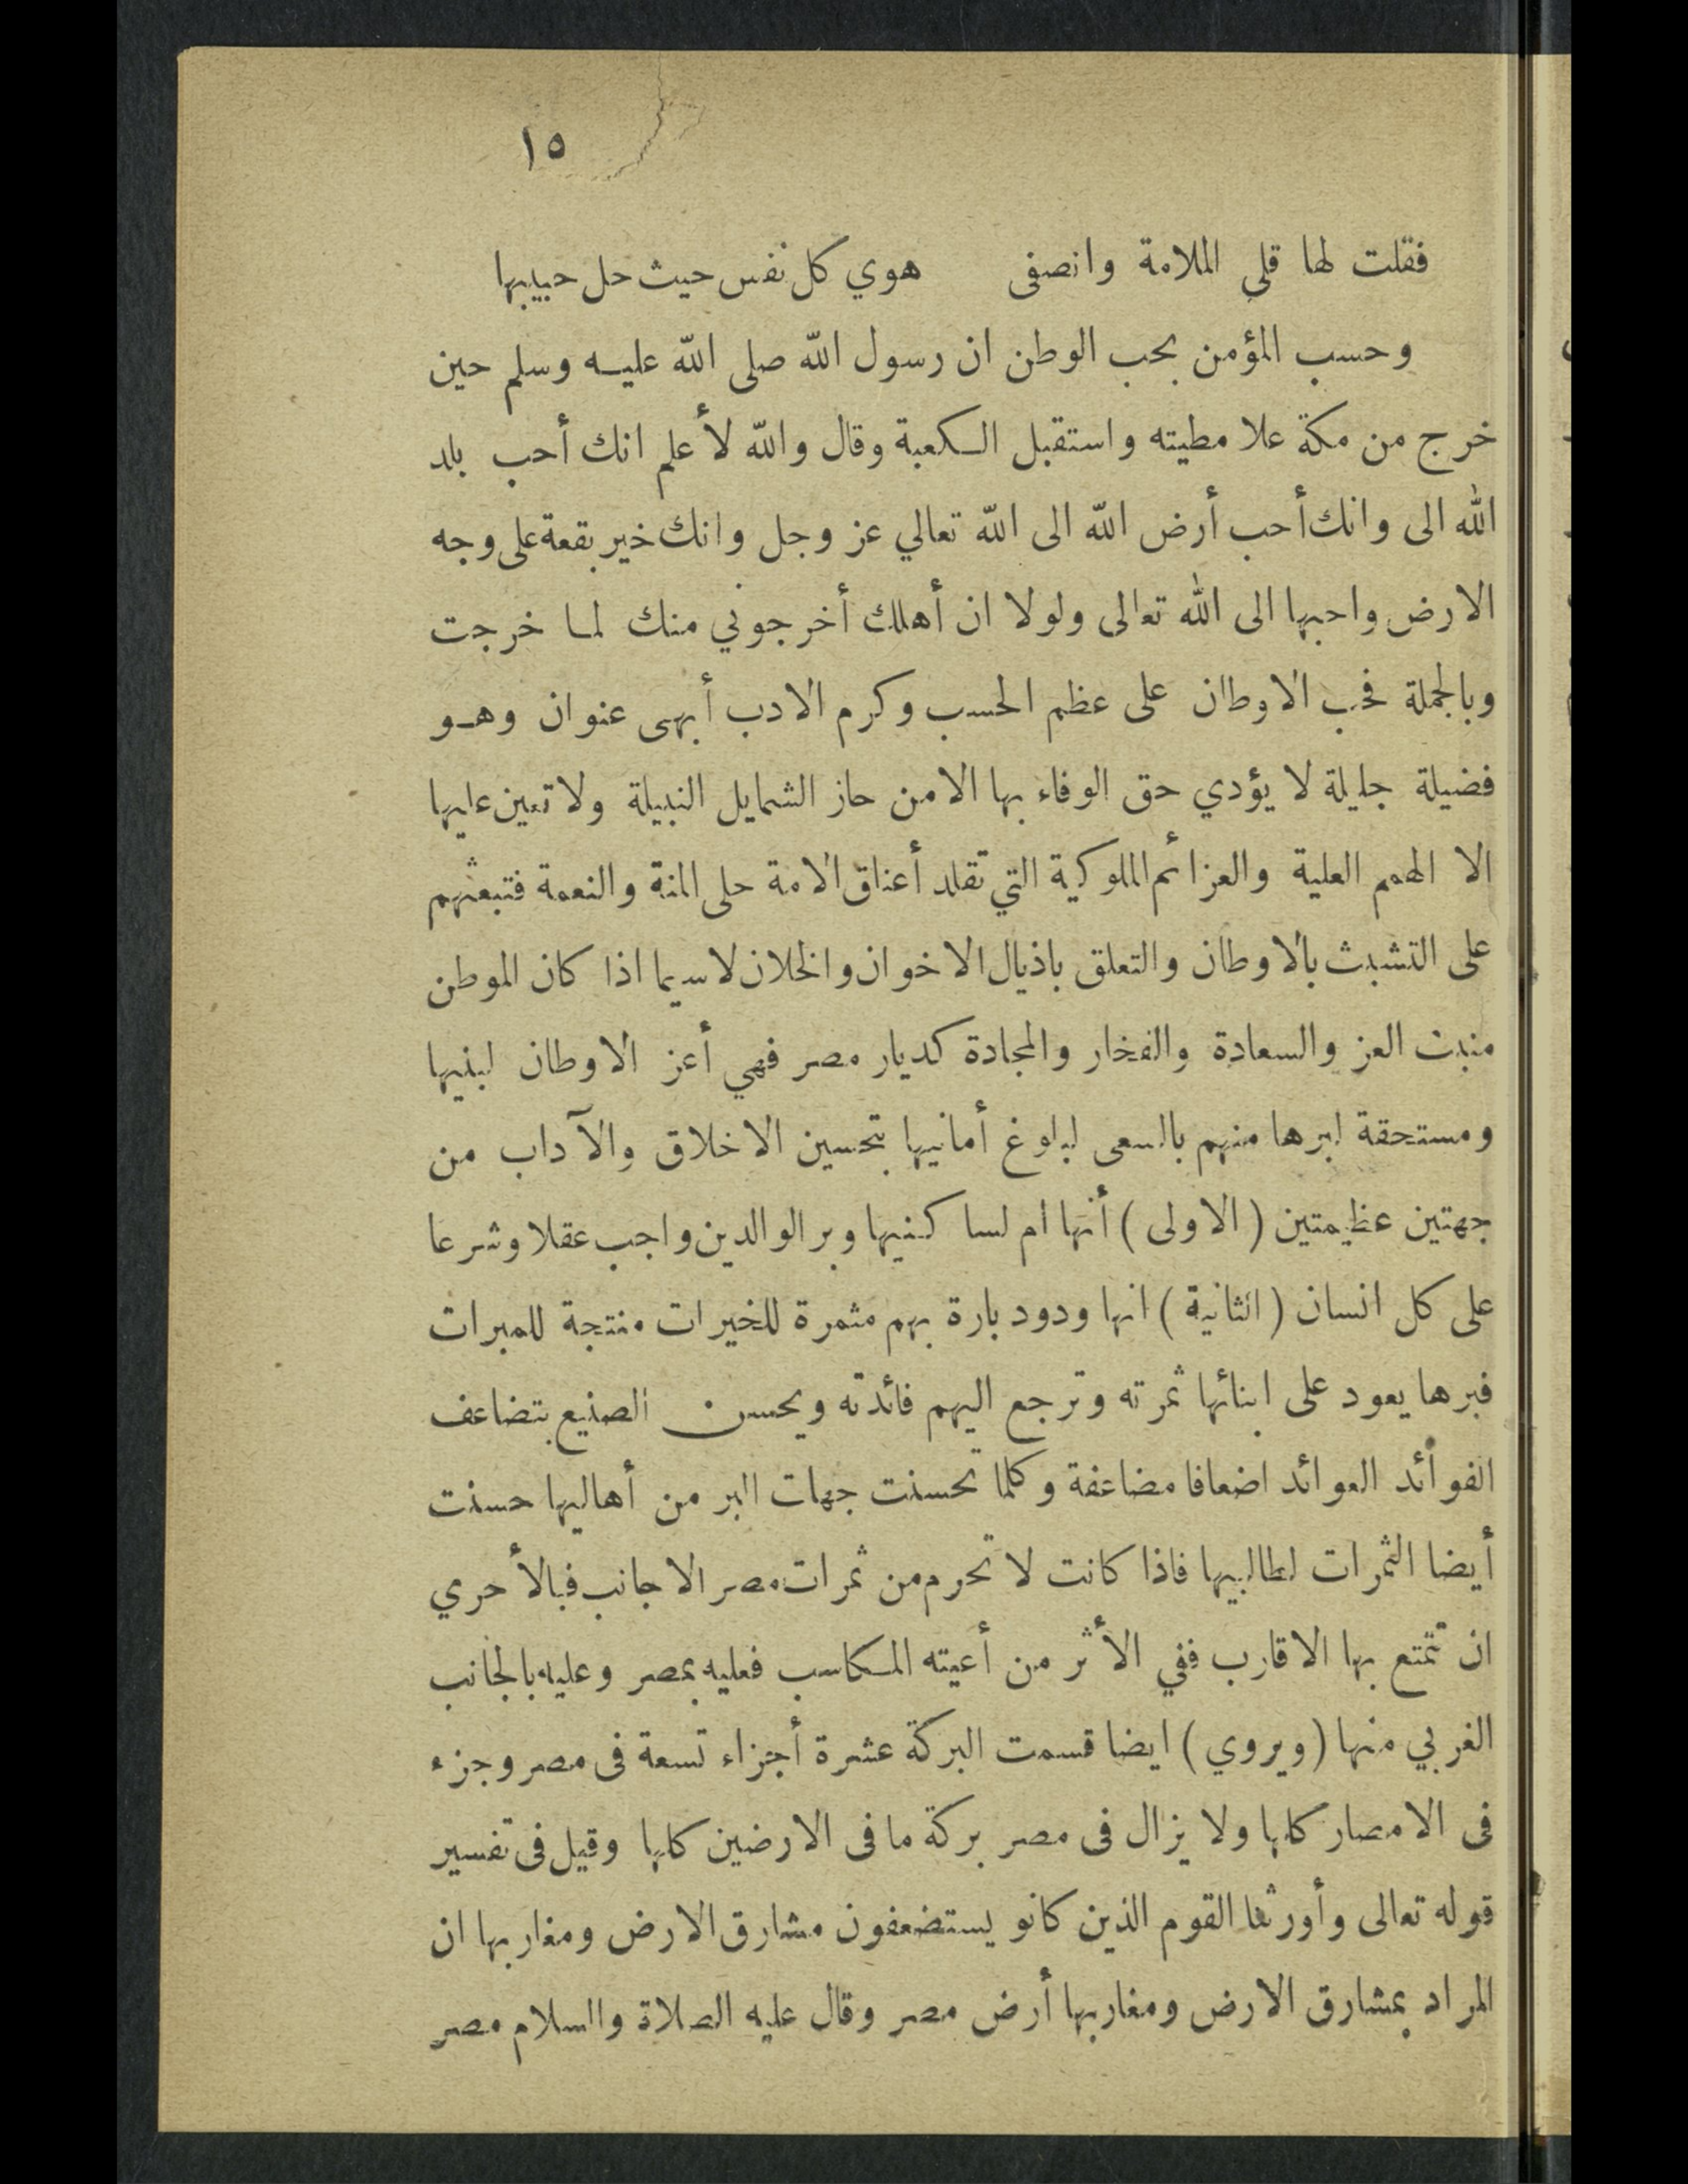 ١٥
فقلت لها قلى الملامة وانصفى هوي كل نفس حيث حل حبيبها
وحسب المؤمن بحب الوطن ان رسول الله صلى الله عليه وسلم حين
خرج من مكة علا مطيته واستقبل الكعبة وقال والله لأعلم انك أحب بلد
الله الى وانك أحب أرض الله الى الله تعالي عز وجل وانك خير بقعة على وجه
الارض واحبها الى الله تعالى ولولا ان أهلك أخرجوني منك لما خرجت
وبالجملة فحب الاوطان على عظم الحسب وكرم الادب أبهى عنوان وهو
فضيلة جليلة لا يؤدي حق الوفاء بها الا من حاز الشمايل النبيلة ولا تعين عليها
الا الهمم العلية والعزائم الملوكية التي تقلد أعناق الامة حلى المنة والنعمة فتبعثهم
على التشبث بالاوطان والتعلق باذيال الاخوان والخلان لاسيما اذا كان الموطن
منبت العز والسعادة والفخار والمجادة كديار مصر فهي أعز الاوطان لبنيها
ومستحقة لبرها منهم بالسعى لبلوغ أمانيها بتحسين الاخلاق والآداب من
جهتين عظيمتين (الاولى) أنها ام لساكنيها وبر الوالدين واجب عقلا وشرعا
على كل انسان (الثانية) انها ودود بارة بهم مثمرة للخيرات منتجة للمبرات
فبرها يعود على ابنائها ثمرته وترجع اليهم فائدته ويحسن الصنيع بتضاعف
الفوائد العوائد اضعافا مضاعفة وكلما تحسنت جهات البر من أهاليها حسنت
أيضا الثمرات لطالبيها فاذا كانت لا تحرم من ثمرات مصر الاجانب فبالأحري
ان تتمتع بها الاقارب ففي الأثر من أعيته المكاسب فعليه بمصر وعليه بالجانب
الغربي منها (ويروي) ايضا قسمت البركة عشرة أجزاء تسعة فى مصر وجزء
فى الامصار كلها ولا يزال فى مصر بركة ما فى الارضين كلها وقيل فى تفسير
قوله تعالى وأورثنا القوم الذين كانو يستضعفون مشارق الارض ومغاربها ان
المراد بمشارق الارض ومغاربها أرض مصر وقال عليه الصلاة والسلام مصر